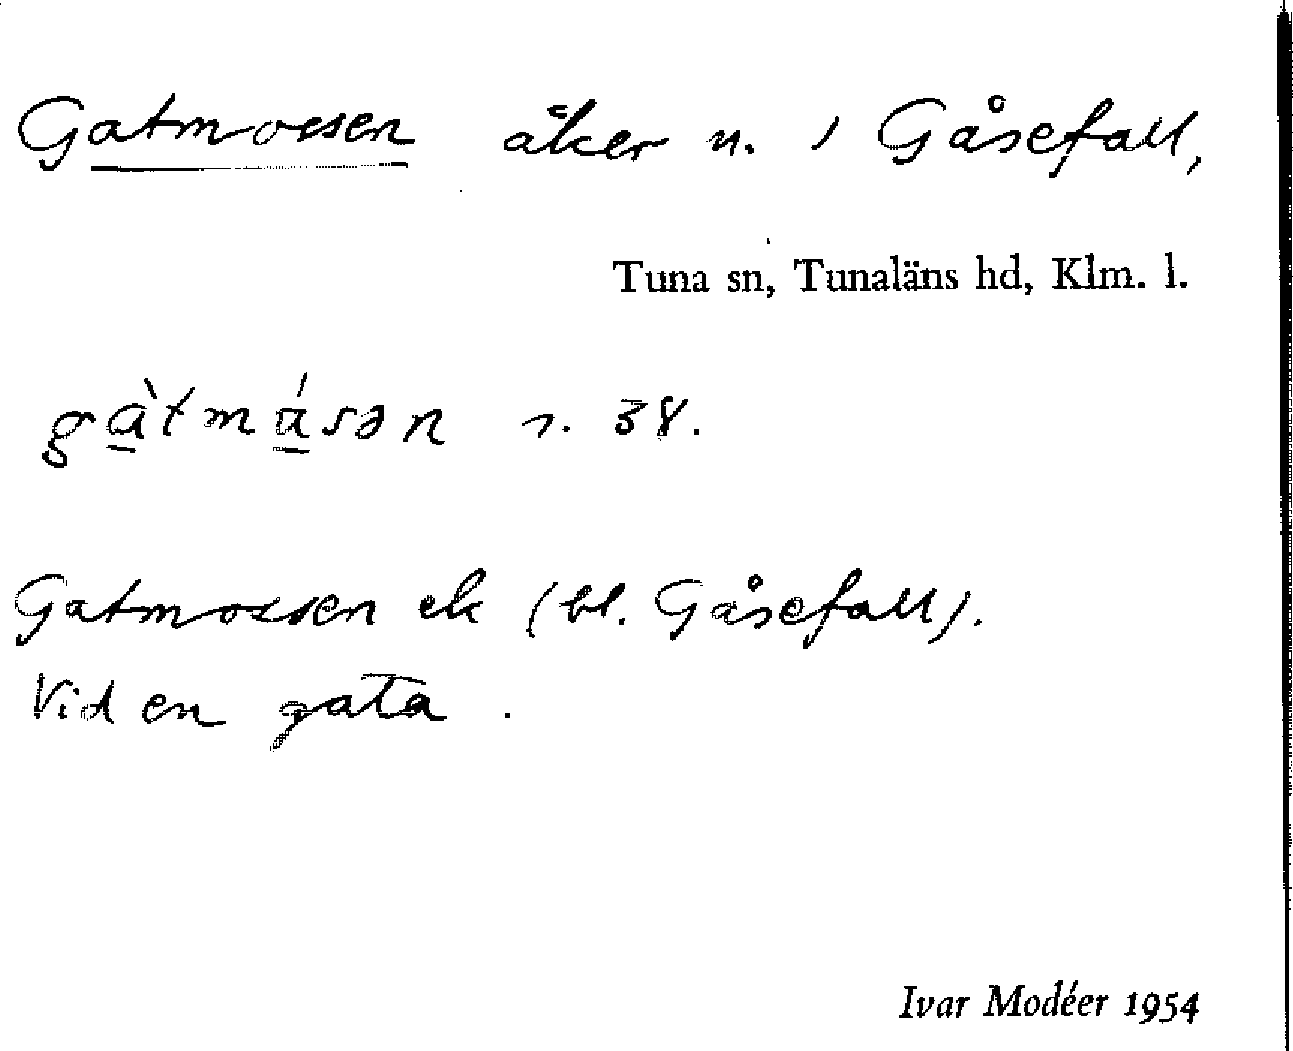 Gatmossen åker n. i Gåsefall,
Tuna sn, Tunaläns hd, Klm. l.
gàtmásən s. 38.
Gatmossen ek (bl. Gåsefall).
Vid en gata .
Ivar Modéer 1954